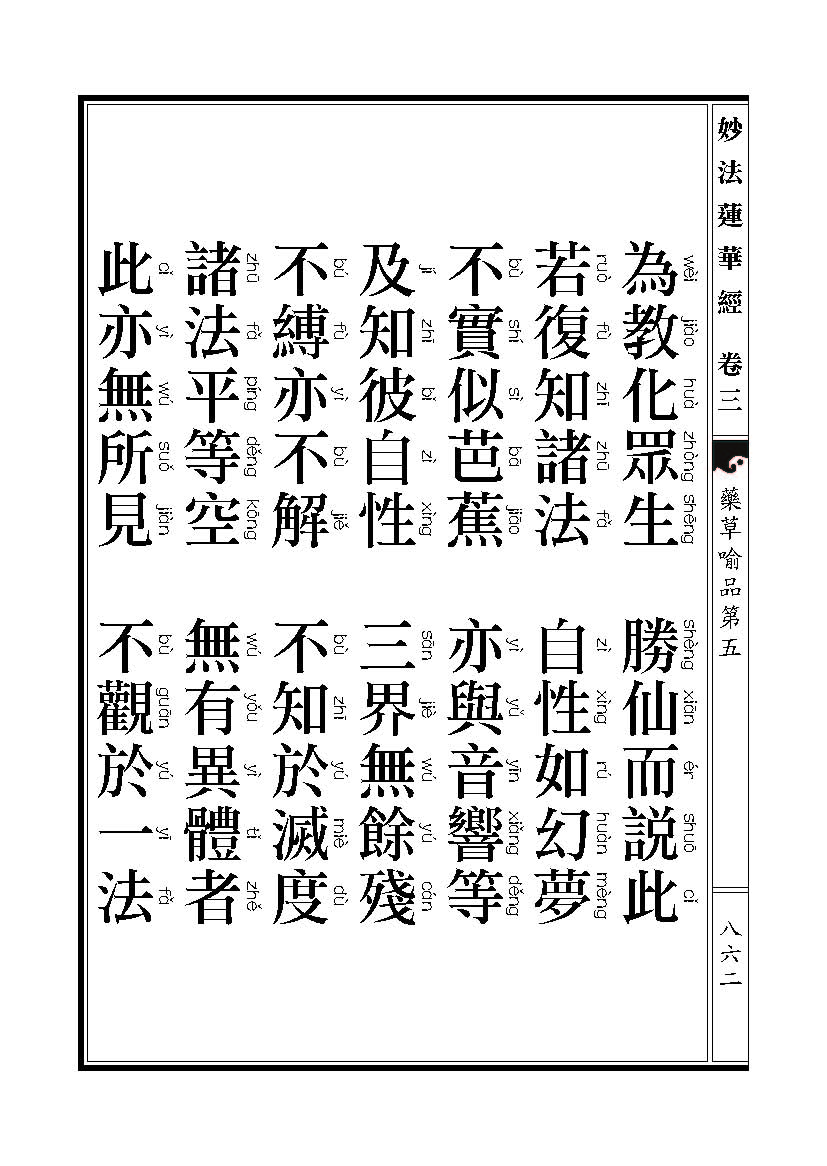 妙法蓮華經 卷三
藥草喻品第五
八六二
為教化眾生 勝仙而説此
wèi jiāo huà zhòng shēng shèng xiān ér shuō cǐ
若復知諸法 自性如幻夢
ruò fù zhī zhū fǎ zì xìng rú huàn mèng
不實似芭蕉 亦與音響等
bù shí sì bā jiāo yì yǔ yīn xiǎng děng
及知彼自性 三界無餘殘
jí zhī bǐ zì xìng sān jiè wú yú cán
不縛亦不解 不知於滅度
bú fù yì bù jiě bù zhī yú miè dù
諸法平等空 無有異體者
zhū fǎ píng děng kōng wú yǒu yì tǐ zhě
此亦無所見 不觀於一法
cǐ yì wú suǒ jiàn bù guān yú yī fǎ